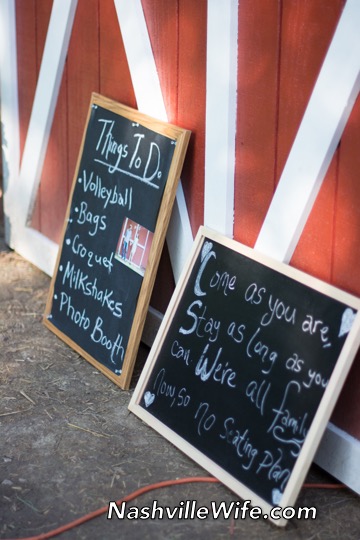 Things To Do
• Volleyball
• Bags
• Croquet
• Milkshakes
• Photo Booth
Come as you are,
Stay as long as you
can We're all family
now so no Seating Plan
NashvilleWife.Com